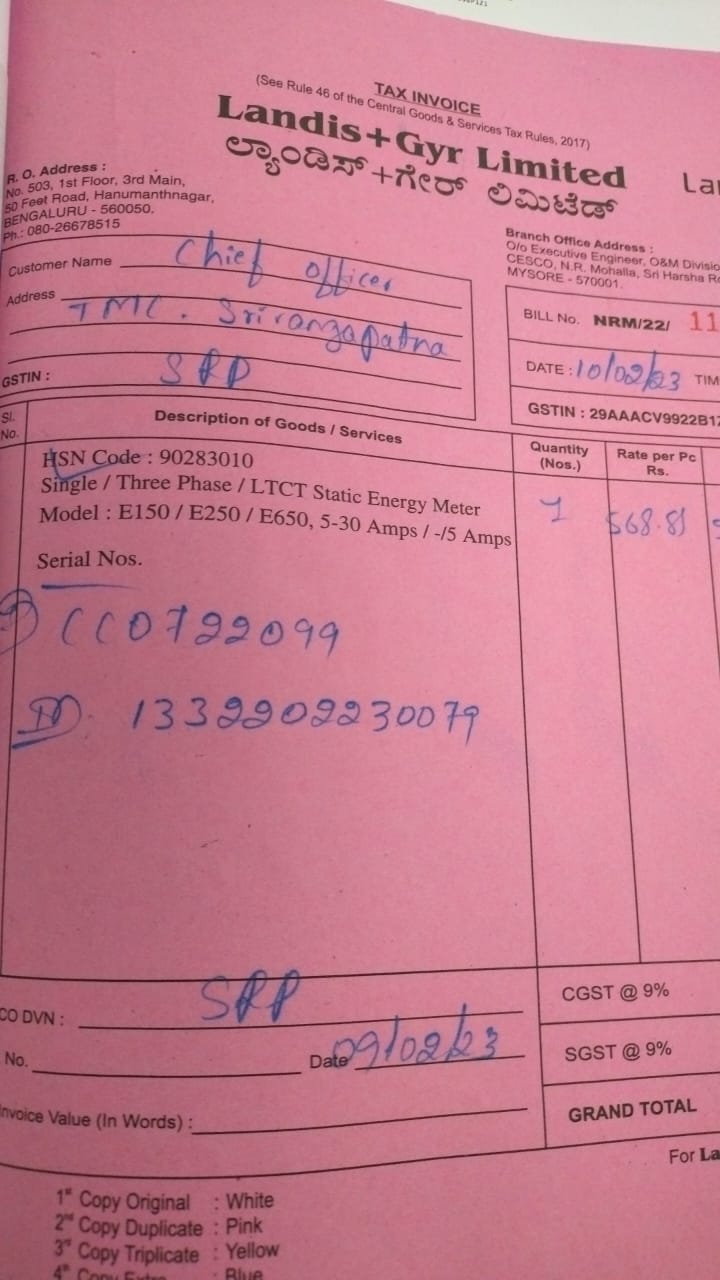 TAX INVOICE
(See Rule 46 of the Central Goods & Services Tax Rules, 2017)
Landis+Gyr Limited
ಲ್ಯಾಂಡಿಸ್+ಗೇರ್ ಲಿಮಿಟೆಡ್
R. O. Address :
No. 503, 1st Floor, 3rd Main,
50 Feet Road, Hanumanthnagar,
BENGALURU - 560050.
Ph.: 080-26678515
Branch Office Address :
O/o Executive Engineer, O&M Divisio
CESCO, N.R. Mohalla, Sri Harsha Ro
MYSORE - 570001.
Customer Name Chief Officer
Address TMC. Srirangapatna
GSTIN : SRP
BILL No. NRM/22/ 11
DATE : 10/02/23 TIM
GSTIN : 29AAACV9922B1
Sl. No. Description of Goods / Services Quantity (Nos.) Rate per Pc Rs.
HSN Code : 90283010
Single / Three Phase / LTCT Static Energy Meter
Model : E150 / E250 / E650, 5-30 Amps / -/5 Amps
1 568.81
Serial Nos.
CC0722099
1332202230079
CO DVN : SRP
No. Date 09/02/23
Invoice Value (In Words) :
CGST @ 9%
SGST @ 9%
GRAND TOTAL
For La
1st Copy Original : White
2nd Copy Duplicate : Pink
3rd Copy Triplicate : Yellow
4th Copy Extra : Blue